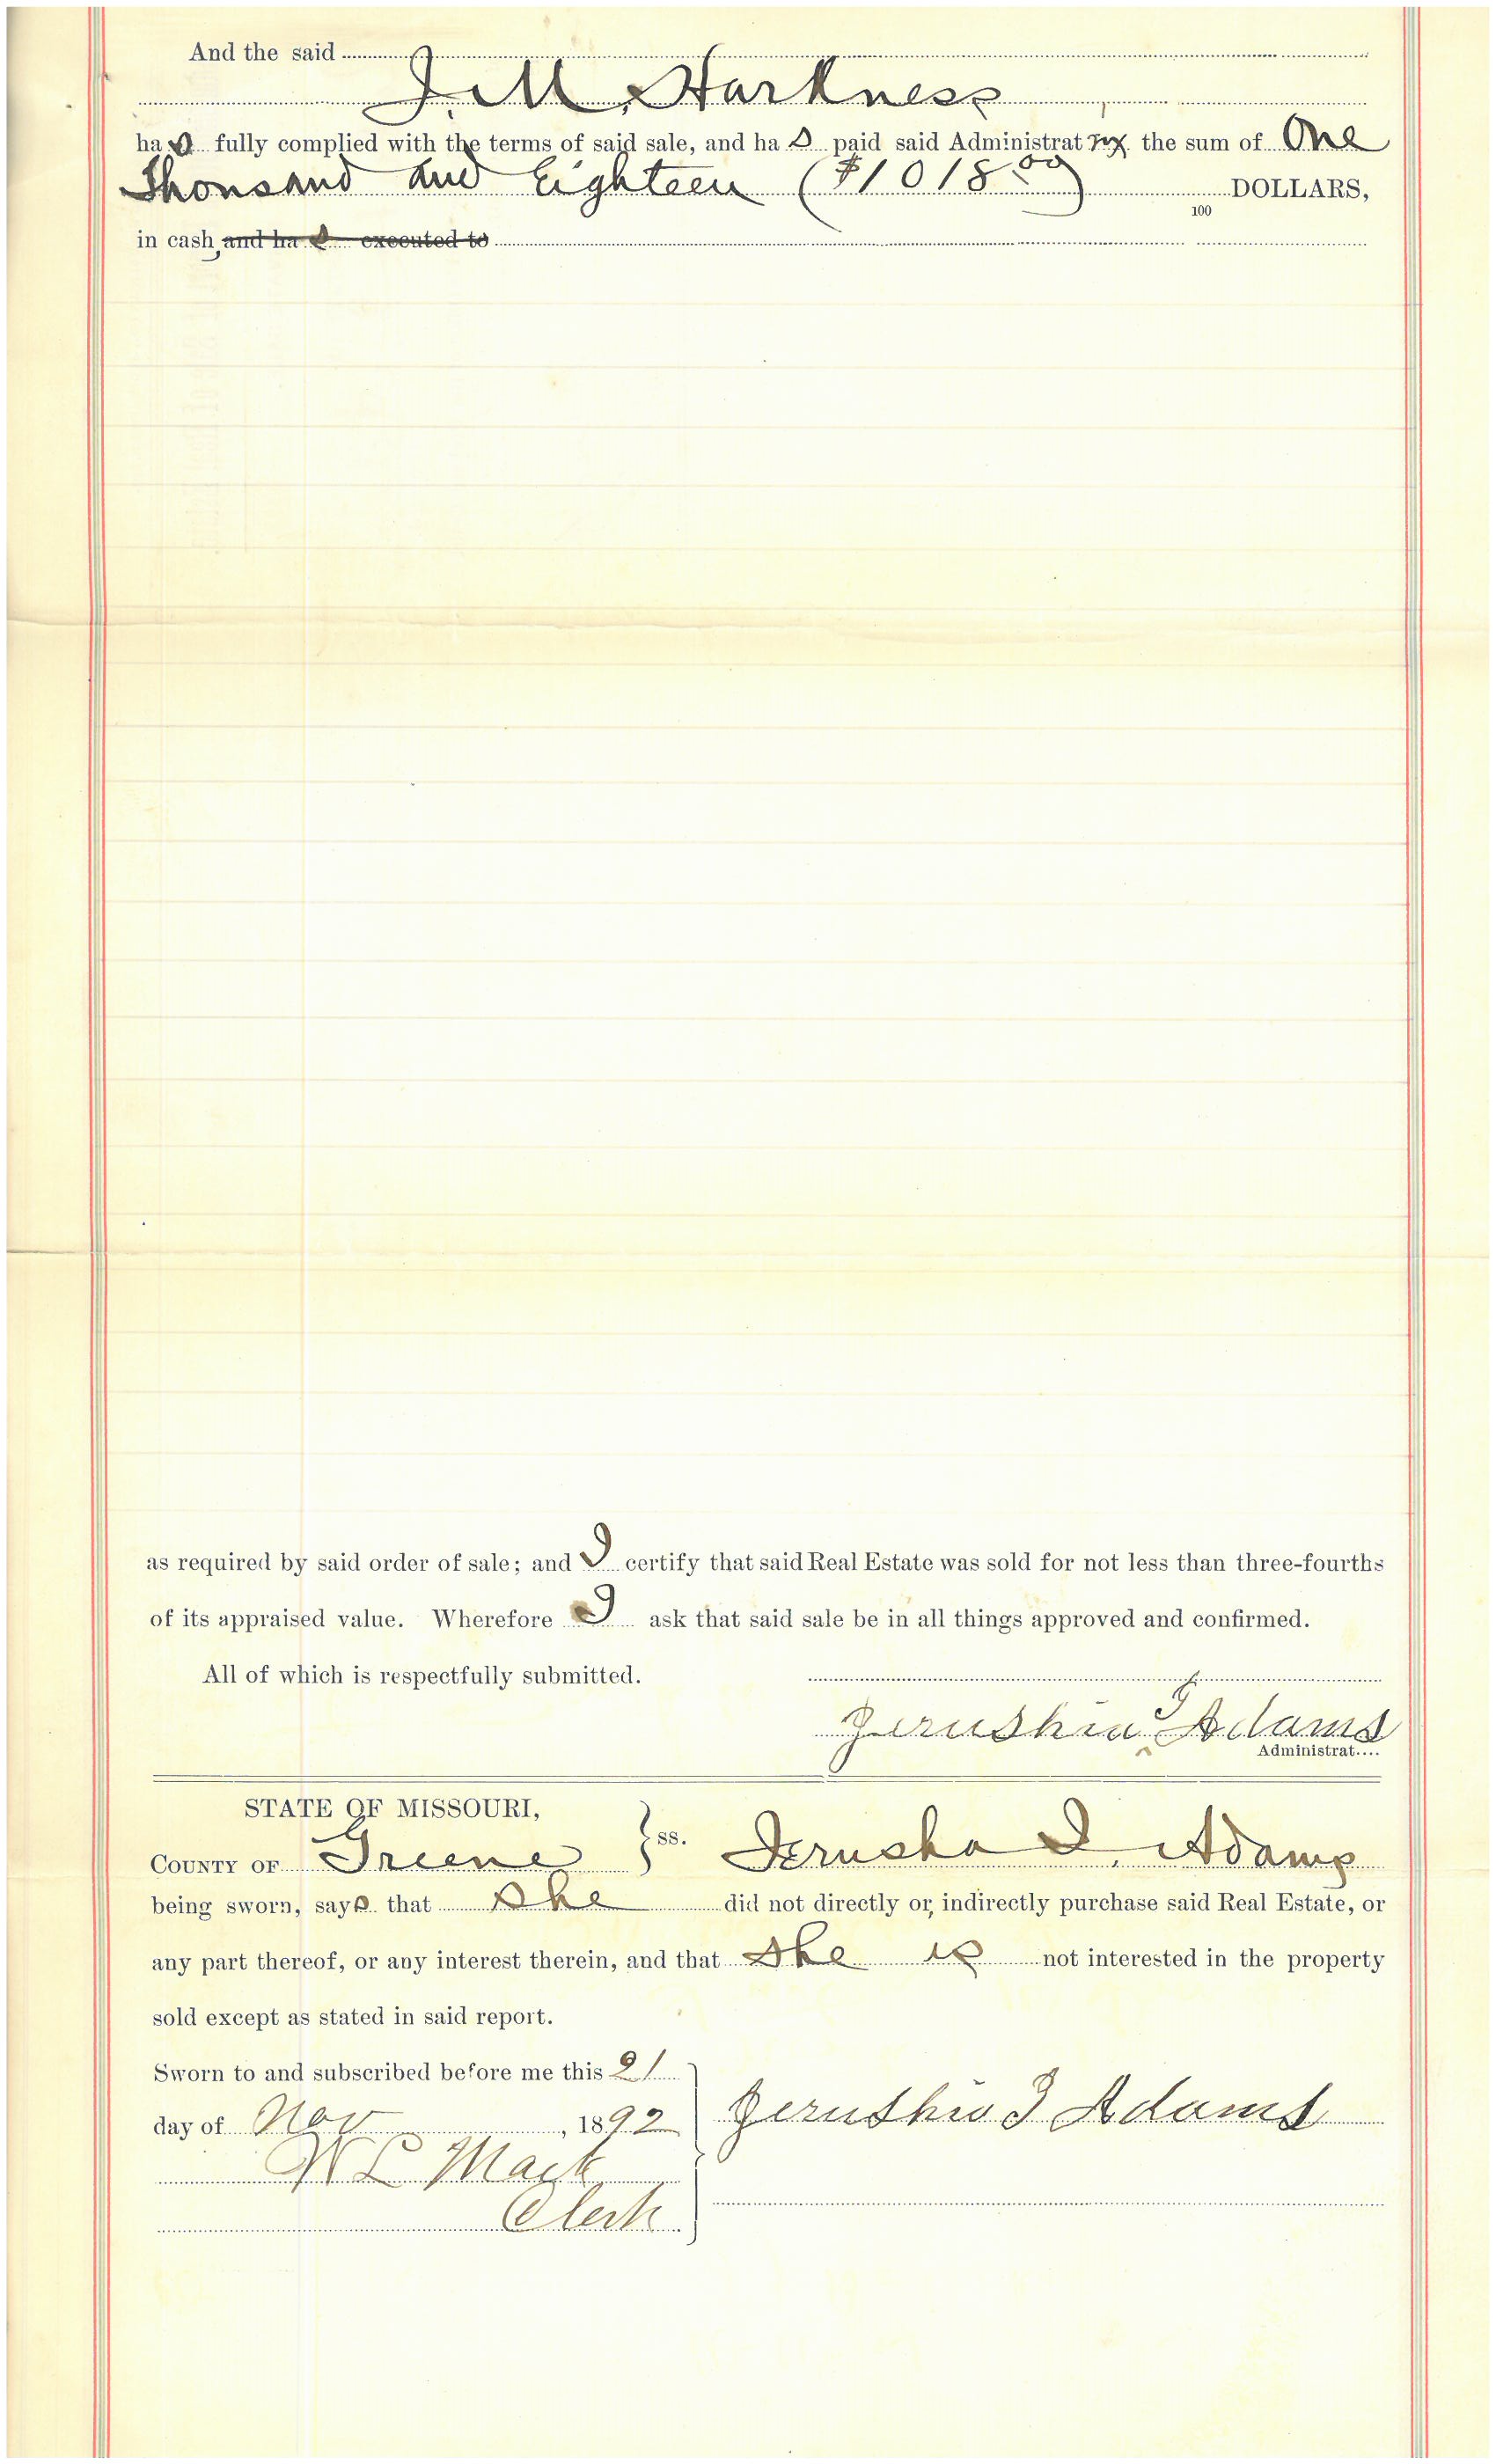 And the said
J. M. Harkness
ha s fully complied with the terms of said sale, and ha s paid said Administrat rix the sum of One
Thousand and Eighteen ($1018.00) DOLLARS,
100
in cash, and ha s executed to
as required by said order of sale; and I certify that said Real Estate was sold for not less than three-fourths
of its appraised value. Wherefore I ask that said sale be in all things approved and confirmed.
All of which is respectfully submitted.
Jerusha I Adams
Administrat....
STATE OF MISSOURI,
COUNTY OF Greene } ss. Jerusha I. Adams
being sworn, says that She did not directly or indirectly purchase said Real Estate, or
any part thereof, or any interest therein, and that She is not interested in the property
sold except as stated in said report.
Sworn to and subscribed before me this 21
day of Nov, 1892 Jerusha I Adams
Mack
Clerk